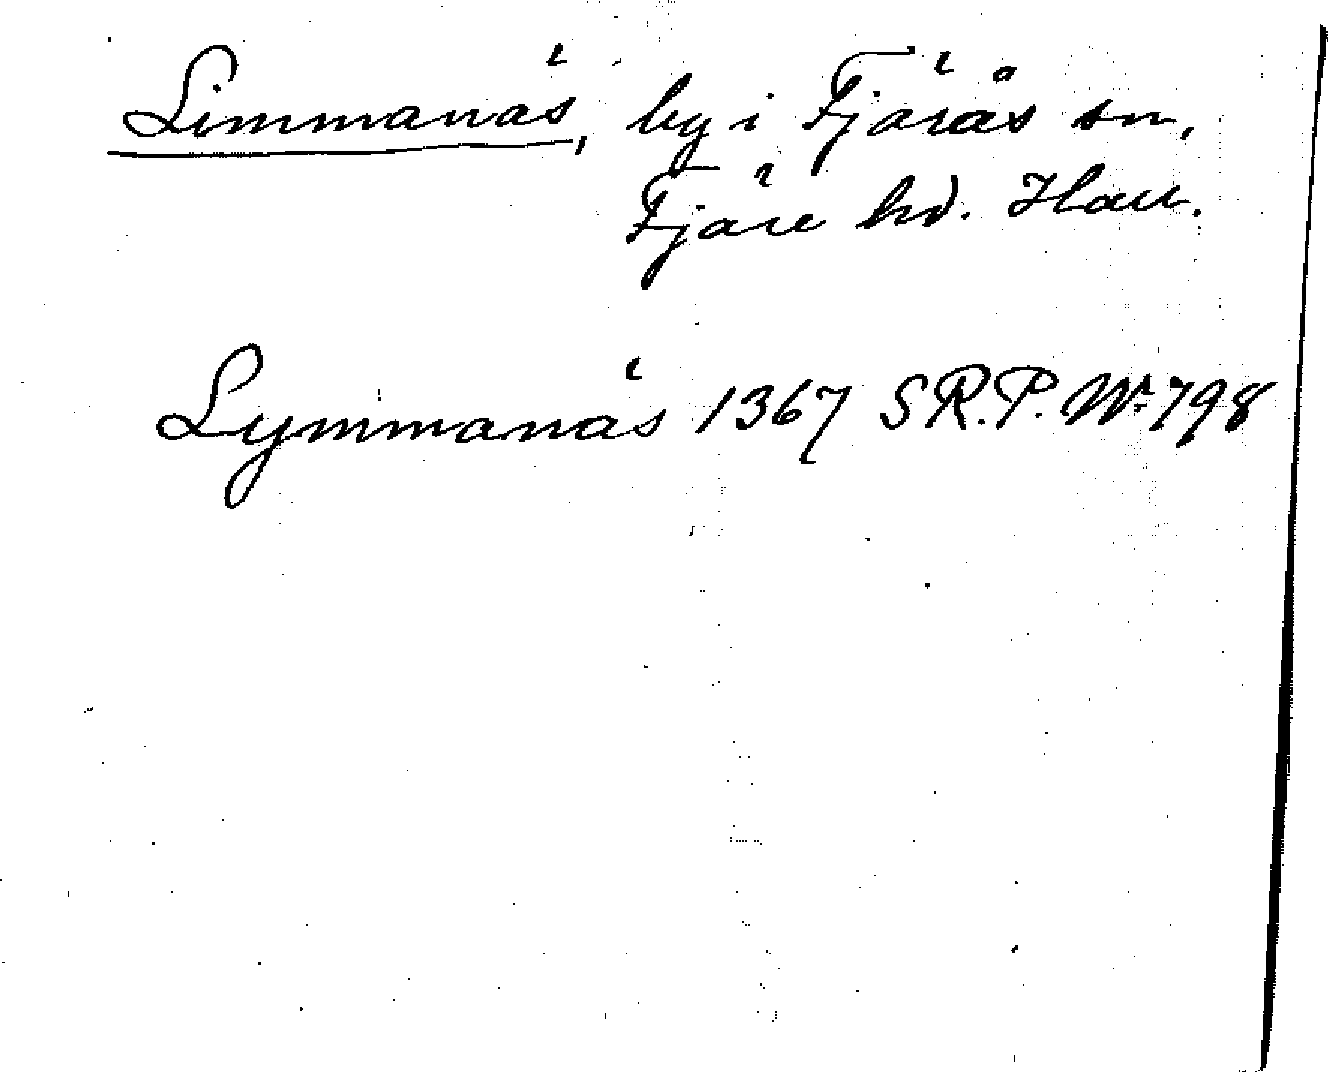 Limmanäs, by i Fjärås sn,
Fjäre hd. Hall.
Lymmanäs 1367 S R.P. Nr 798